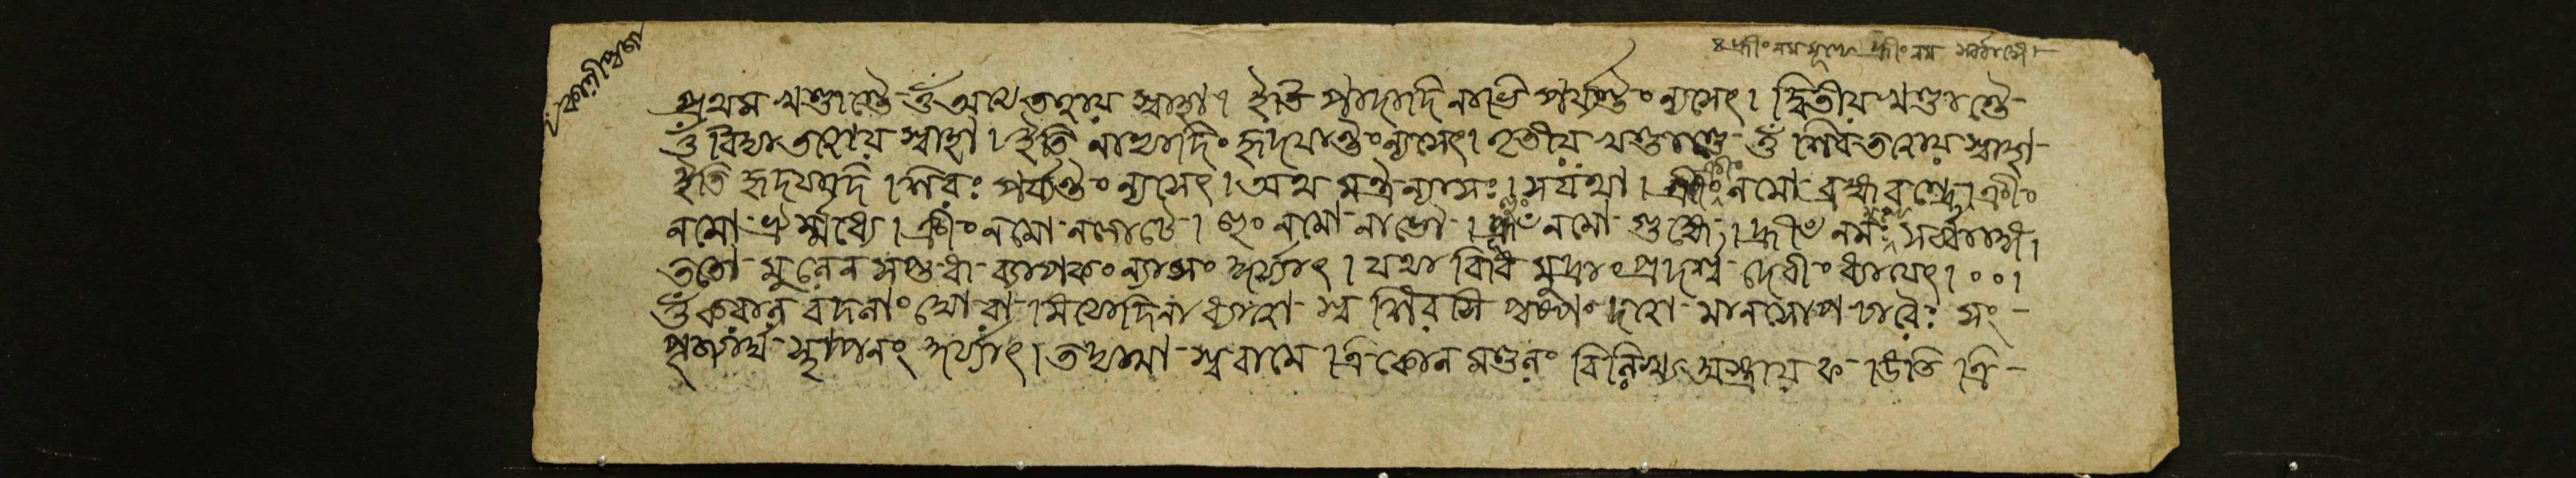 ক্রীং নম মূলে ক্রীং নম সর্ব্বাঙ্গে।
প্রথম খণ্ডান্তে ওঁ আত্মতত্ত্বায় স্বাহা। ইতি পাদাদি নাভি পর্য্যন্তং ন্যসেৎ। দ্বিতীয় খণ্ডান্তে-
ওঁ বিদ্যাতত্ত্বায় স্বাহা। ইতি নাভ্যাদি হৃদয়ান্তং ন্যসেৎ। তৃতীয় খণ্ডান্তে ওঁ শিবতত্ত্বায় স্বাহা-
ইতি হৃদয়াদি শিরঃ পর্য্যন্তং ন্যসেৎ। অথ মন্ত্রন্যাসঃ। স যথা। ক্রীং নমো ব্রহ্মরন্ধ্রে। ক্রীং
নমো ভ্রূর্ম্মধ্যে। ক্রীং নমো ললাটে। হূং নমো নাভৌ। নমো গুহ্যে। হ্রীং নমঃ সর্ব্বাঙ্গে।
ততো মূলেন সপ্তধা ব্যাপকং ন্যাসং কুর্য্যাৎ। যথা বিধি মুদ্রাং প্রদর্শ্য দেবীং ধ্যায়েৎ। ০০।
ওঁ করাল বদনাং ঘোরা মিত্যাদিনা ধ্যাত্বা স্ব শিরসি পুষ্পং দত্বা মানসোপচারৈঃ সং-
পূজ্যার্ঘ্য স্থাপনং কুর্য্যাৎ। তদ্যথা স্ববামে ত্রিকোন মণ্ডলং বিলিখ্য অস্ত্রায় ফডিতি ত্রি-